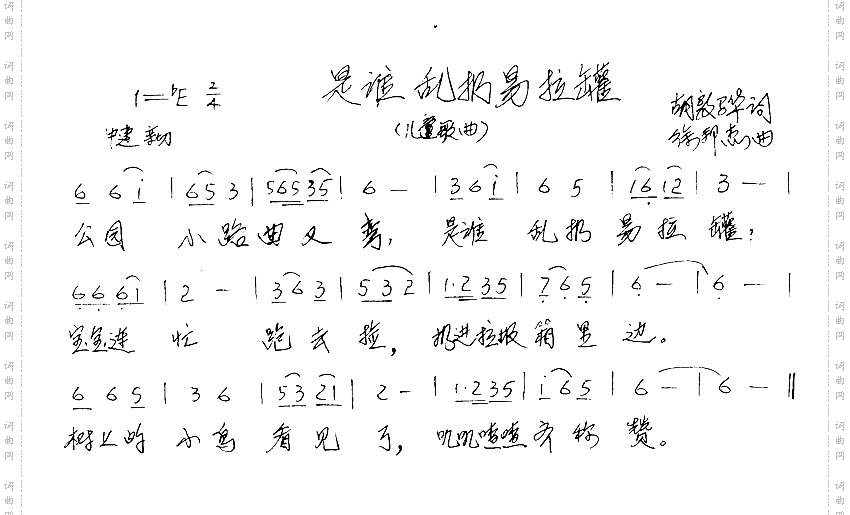 是谁乱扔易拉罐
1=♭E 2/4
(儿童歌曲)
胡敦华词
中速
徐邦杰曲
6 6 i | 6 5 3 | 5653 5 | 6 - | 3 6 i | 6 5 | 16 12 | 3 - - |
公园 小路曲又弯,是谁 乱扔易拉罐,
6 6 6 1 | 2 - | 3 6 3 | 5 3 2 | 1·2 35 | 7 6 5 | 6 - | 6 - |
宝宝连忙 跑去捡,扔进垃圾箱里边。
6 6 5 | 3 6 | 53 21 | 2 - | 1·2 35 | i 6 5 | 6 - | 6 - ‖
树上的小鸟看见了,叽叽喳喳齐称赞。
词曲网
词曲网